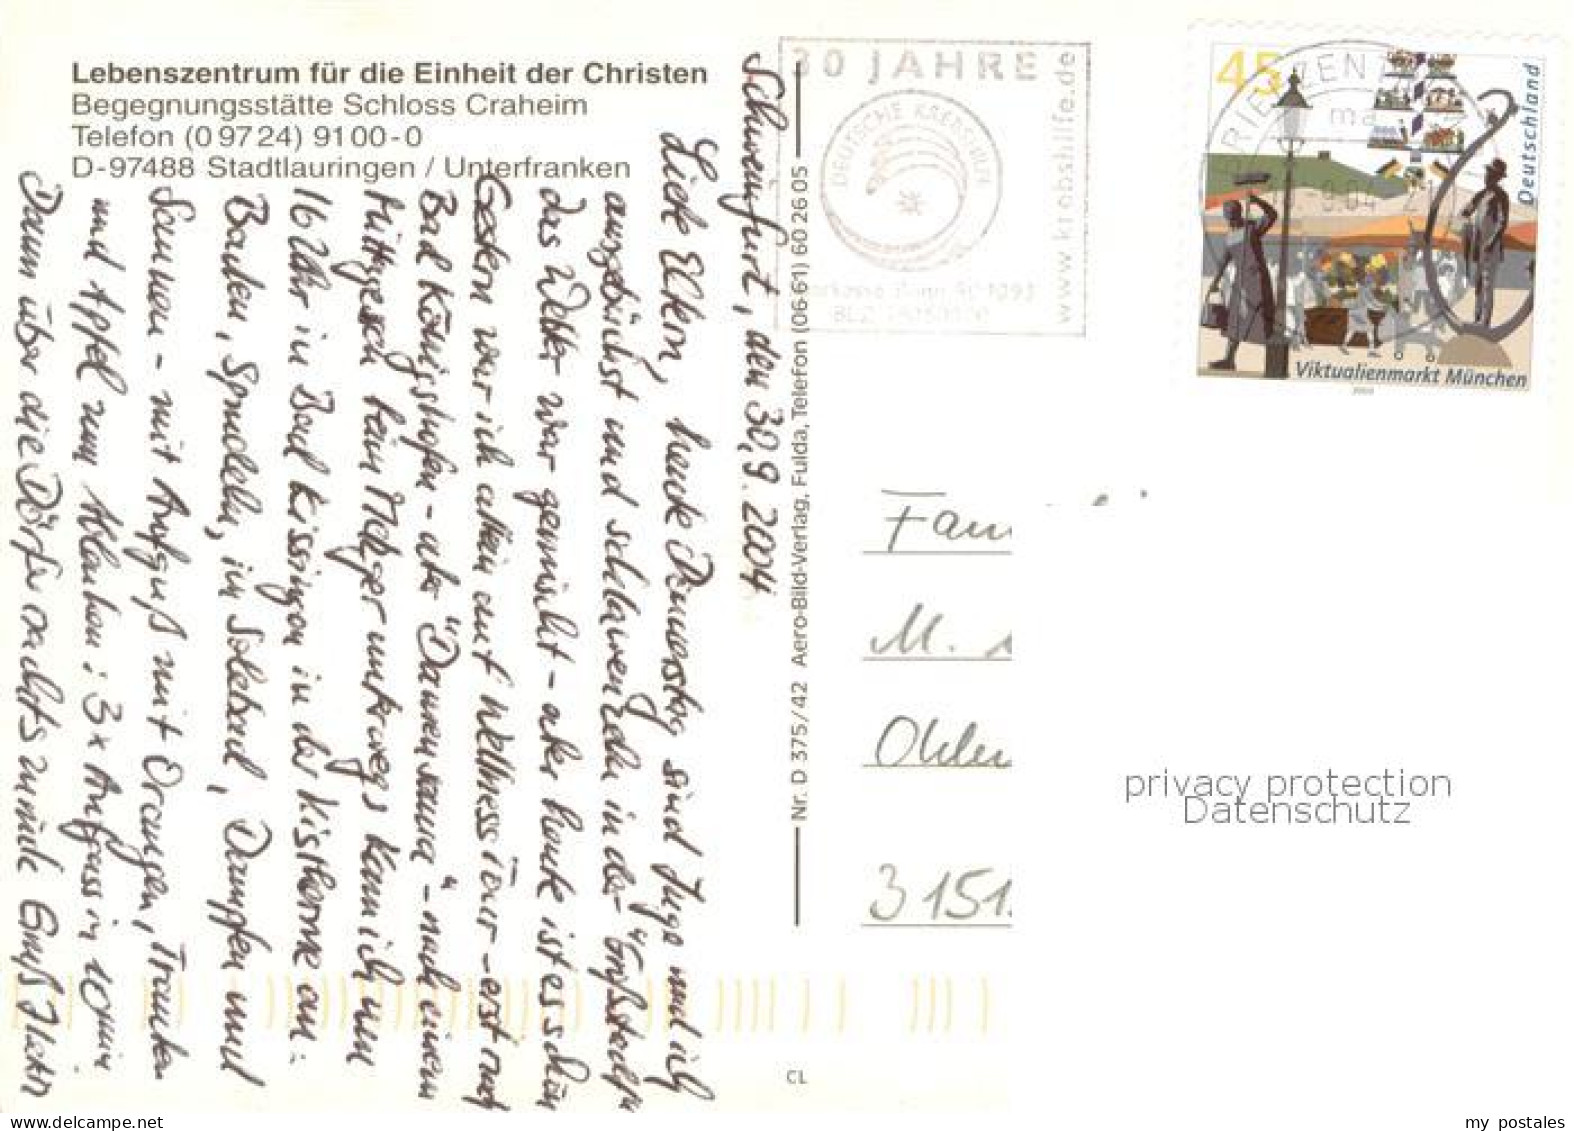 Lebenszentrum für die Einheit der Christen
Begegnungsstätte Schloss Craheim
Telefon (0 97 24) 91 00 - 0
D-97488 Stadtlauringen / Unterfranken
Schweinfurt, den 30.9.2004
Liebe Eltern, heute Donnerstag sind Inge und ich
ausgebüchst und schlawenzeln in der "Großstadt"
das Wetter war gemischt - aber heute ist es schön
Gestern war ich allein auf Wellness Tour - erst nach
Bad Königshofen - aber "Damensauna" - nach einem
Mittagessen beim Metzger unterwegs kam ich um
16 Uhr in Bad Kissingen in der Kisstherme an:
Baden, Sprudeln, im Solebad, Dampfen und
Saunen - mit Aufguß mit Orangen, Trauben
und Apfel zum Ablauben: 3x Aufguss in 10 min
Dann über die Dörfer nachts zurück Gruß
Nr. D 375/42 Aero-Bild-Verlag, Fulda, Telefon (06 61) 60 26 05
CL
30 JAHRE
DEUTSCHE KREBSHILFE
Sparkasse Bonn
BLZ
www.krebshilfe.de
BRIEFZENTRUM
45
Deutschland
Viktualienmarkt München
Fam
M.
Olden
3151
privacy protection
Datenschutz
© www.ansichtskartenversand.com
my postales